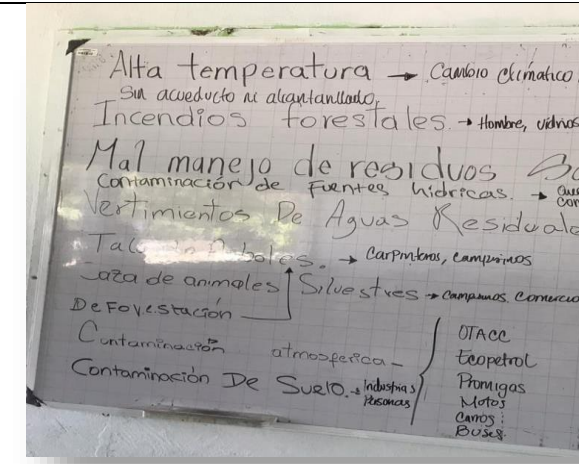 Alta temperatura → Cambio Climatico
Sin acueducto ni alcantarillado,
Incendios forestales. → Hombre, vidrios
Mal manejo de residuos So
Contaminación de Fuentes hídricas. →
Vertimientos De Aguas Residuale
Tala de Arboles. → Carpinteros, campesinos
Caza de animales Silvestres → campesinos. Comercio
Deforestación
Contaminación atmosferica -
Contaminación De Suelo. → Industrias
Personas
OTACC
Ecopetrol
Promigas
Motos
Carros:
Buses.